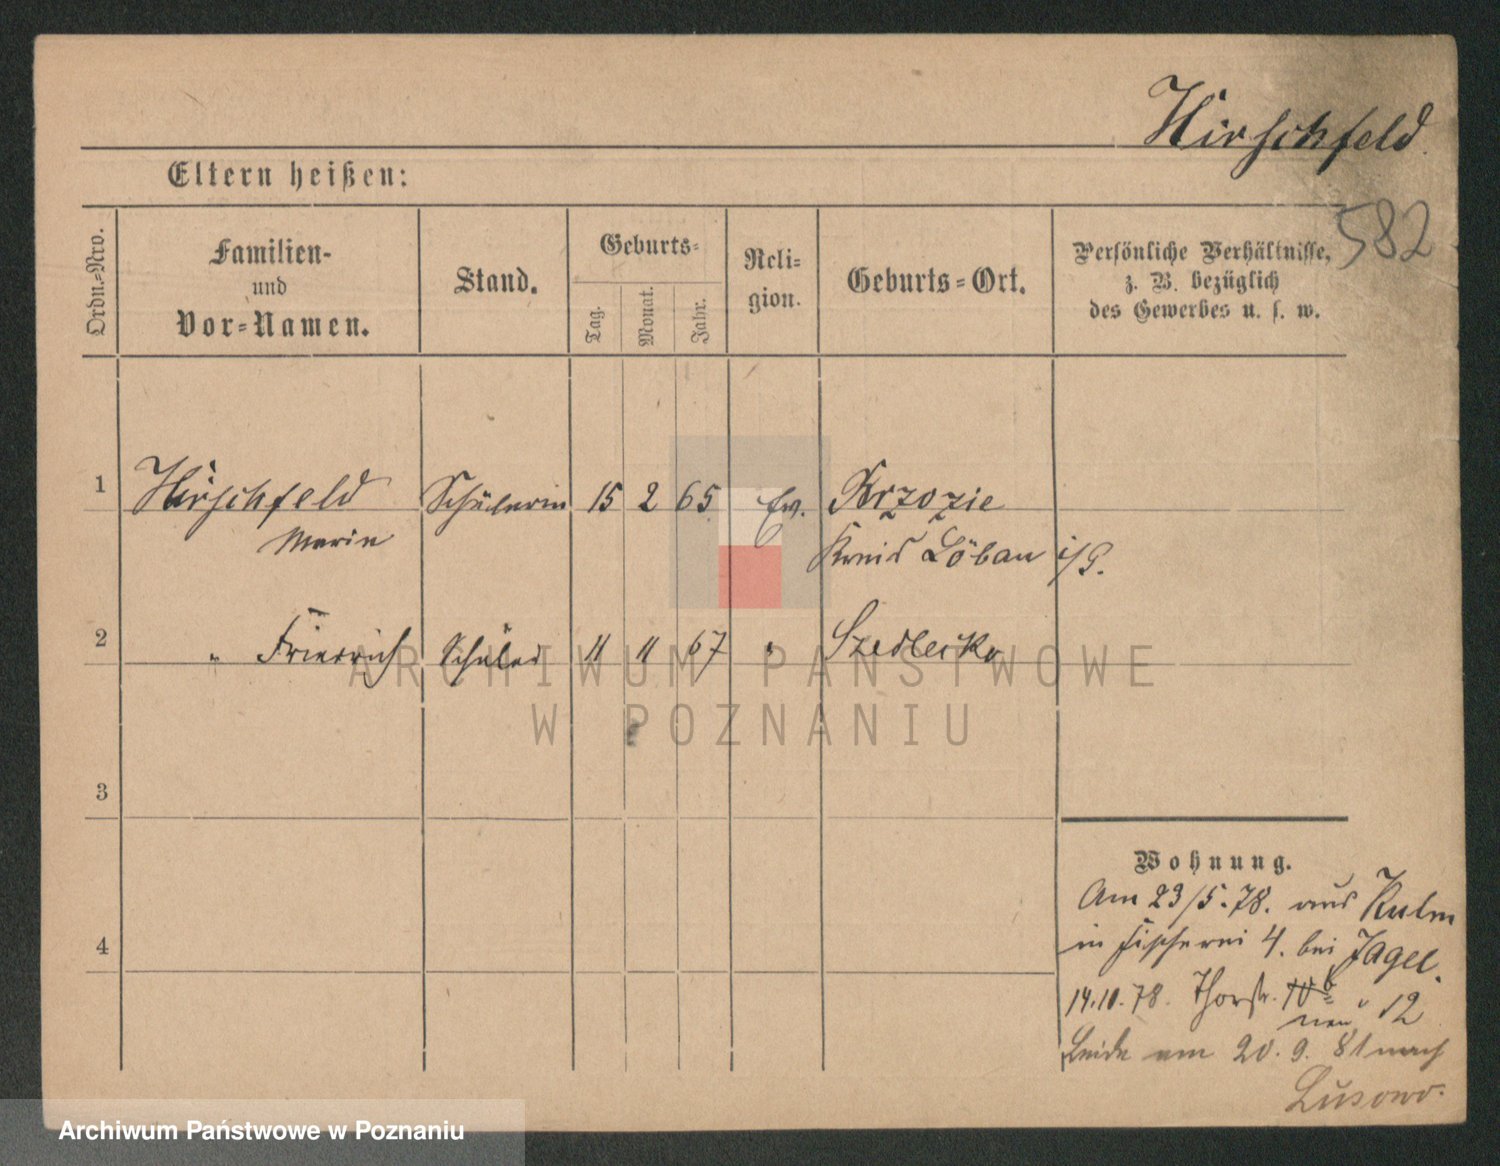 Hirschfeld
Eltern heißen:
582
Ordn.-Nro.
Familien-
und
Vor-Namen.
Stand.
Geburts-
Tag.
Monat.
Jahr.
Reli-
gion.
Geburts-Ort.
Persönliche Verhältnisse,
z. B. bezüglich
des Gewerbes u. s. w.
1 Hirschfeld Schülerin 15 2 65 Ev. Brzozie
Marie Kreis Löbau i/P.
2 " Friedrich Schüler 11 11 67 " Szedlecko
ARCHIWUM PAŃSTWOWE
W POZNANIU
3
4
Wohnung.
Am 23/5.78. aus Kulm
in Fischerei 4. bei Jagel.
14.10.78. Thorstr. 10b " 12
neu
Beide am 20.9.81 nach
Lusowo.
Archiwum Państwowe w Poznaniu